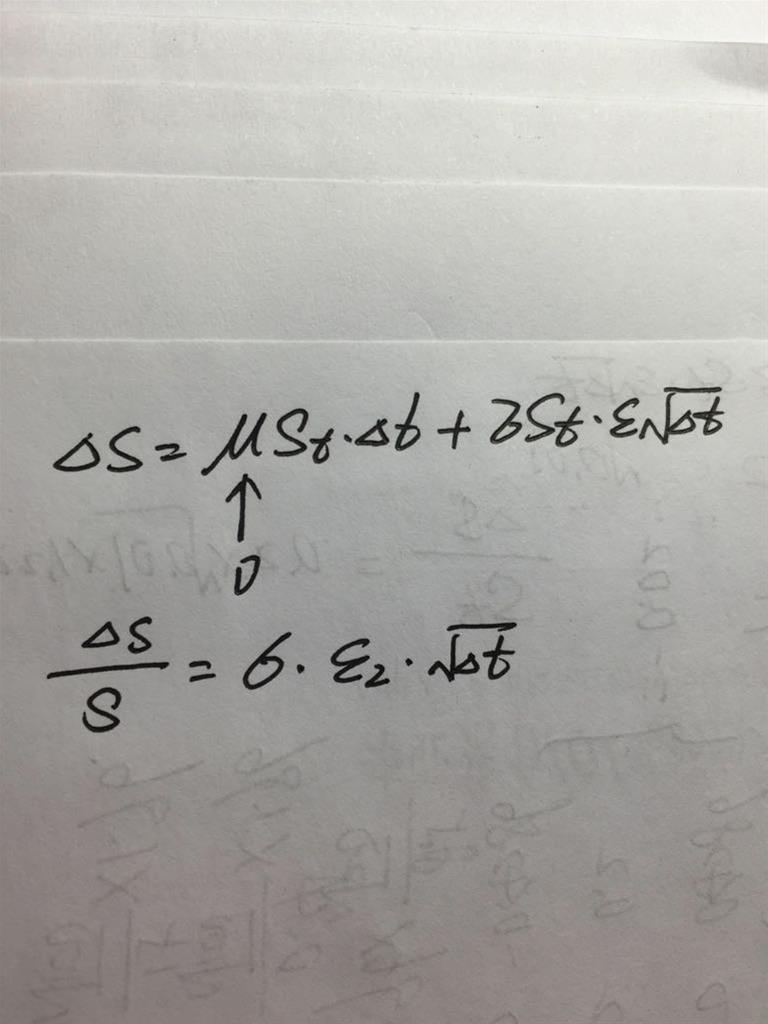 ΔS = μSt·Δt + σSt·ε√Δt
↑
0
ΔS/S = σ·ε₂·√Δt